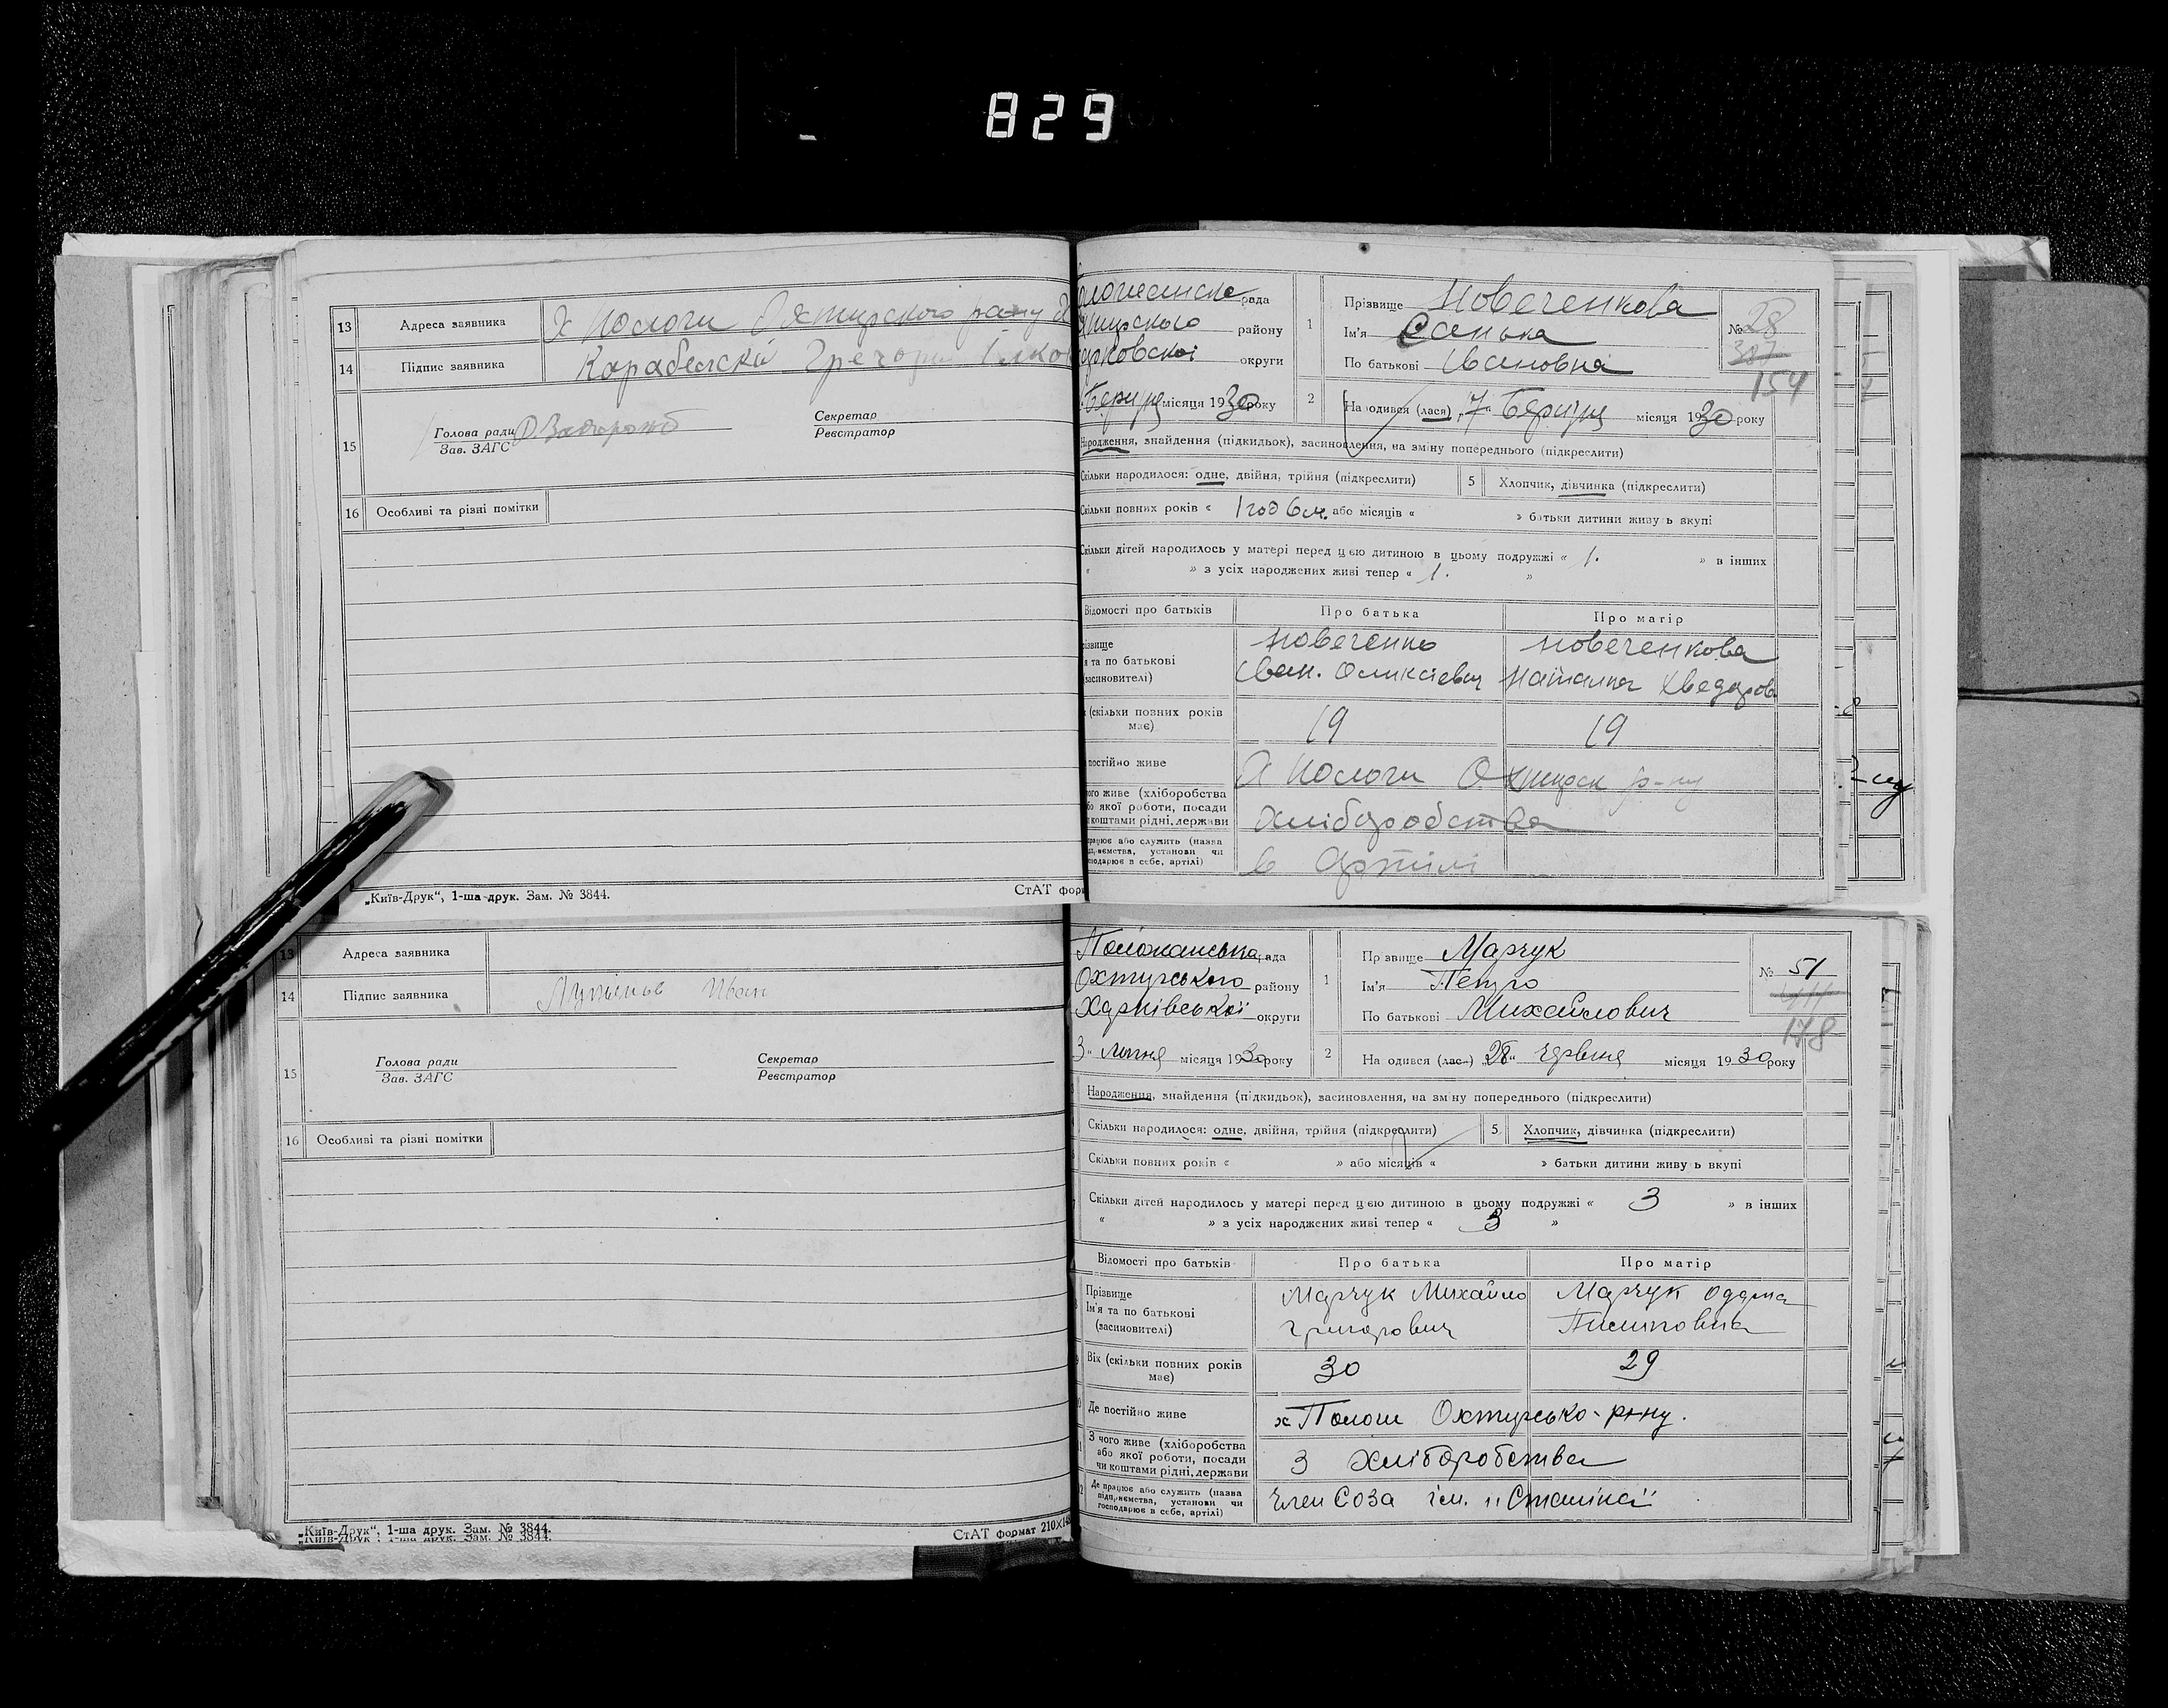 829
13 Адреса заявника Х Пологи Охтирского району
14 Підпис заявника Грегори
15 Голова ради Секретар
Зав. ЗАГС Реєстратор
16 Особливі та різні помітки
„Київ-Друк“, 1-ша друк. Зам. № 3844. СтАТ форм
рада
району
округи
1 Прізвище Новеченкова
Ім'я Санька
По батькові Ивановна
№ 28
307
154
місяця 1930 року
2 Народився (лася) „7“ Берізня місяця 1930 року
Народження, знайдення (підкидьок), засиновлення, на зміну попереднього (підкреслити)
Скільки народилося: одне, двійня, трійня (підкреслити) 5 Хлопчик, дівчинка (підкреслити)
Скільки повних років « 1 год 6 м. або місяців « » батьки дитини живуть вкупі
Скільки дітей народилось у матері перед цією дитиною в цьому подружжі « 1. » в інших
« » з усіх народжених живі тепер « 1. »
Відомості про батьків Про батька Про матір
Новеченко Новеченкова
та по батькові Иван. Оликсіевич Наталка Хведорова
(засиновителі)
(скільки повних років має) 19 19
постійно живе Х Пологи Охтирск р-ну
чого живе (хліборобства
якої роботи, посади
коштами рідні, держави Хліборобства
працює або служить (назва
підприємства, установи чи
господарює в себе, артілі) в Артілі
13 Адреса заявника
14 Підпис заявника Иван
15 Голова ради Секретар
Зав. ЗАГС Реєстратор
16 Особливі та різні помітки
„Київ-Друк“, 1-ша друк. Зам. № 3844.
„Київ-Друк“, 1-ша друк. Зам. № 3844.
СтАТ формат 210×148
рада
Охтирського району
Харківської округи
1 Прізвище Марчук
Ім'я Петро
По батькові Михайлович
№ 51
178
3“ липня місяця 1930 року
2 Народився (лась) „28“ Червня місяця 1930 року
Народження, знайдення (підкидьок), засиновлення, на зміну попереднього (підкреслити)
Скільки народилося: одне, двійня, трійня (підкреслити) 5 Хлопчик, дівчинка (підкреслити)
Скільки повних років « » або місяців « » батьки дитини живуть вкупі
Скільки дітей народилось у матері перед цією дитиною в цьому подружжі « 3 » в інших
« » з усіх народжених живі тепер « 3 »
Відомості про батьків Про батька Про матір
Прізвище Марчук Михайло Марчук Одарка
Ім'я та по батькові Григорович
(засиновителі)
Вік (скільки повних років має) 30 29
Де постійно живе х Пологи Охтирсько-р-ну.
З чого живе (хліборобства
або якої роботи, посади
чи коштами рідні, держави З Хліборобства
Де працює або служить (назва
підприємства, установи чи
господарює в себе, артілі) Член Соза ім. „Сталіна“